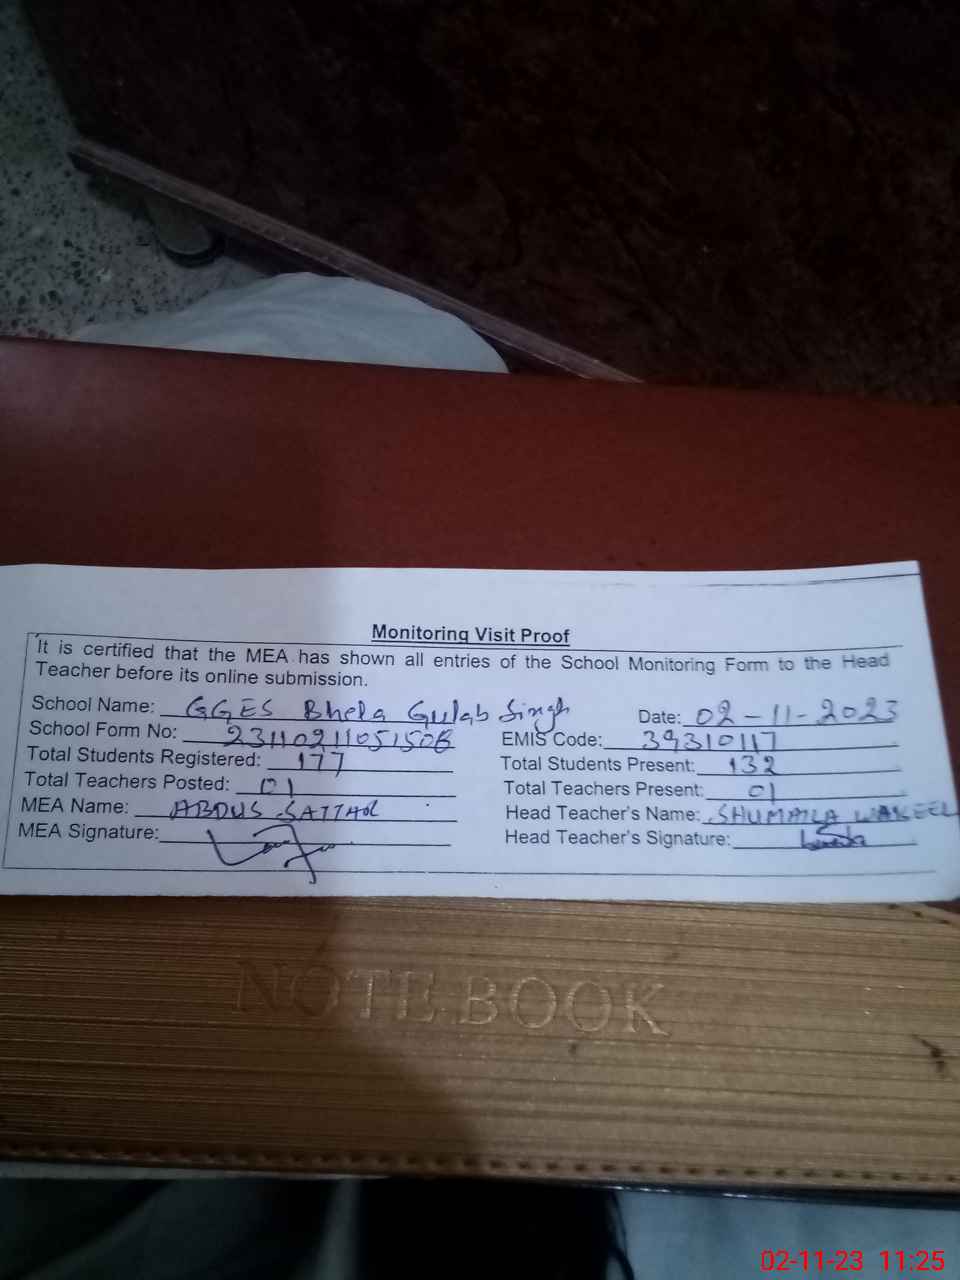 Monitoring Visit Proof
It is certified that the MEA has shown all entries of the School Monitoring Form to the Head
Teacher before its online submission.
School Name: GGES Bhela Gulab Singh Date: 02-11-2023
School Form No: 2311021105150B EMIS Code: 39310117
Total Students Registered: 177 Total Students Present: 132
Total Teachers Posted: 01 Total Teachers Present: 01
MEA Name: ABDUS SATTAR Head Teacher's Name: SHUMAILA WAKEEL
MEA Signature: Head Teacher's Signature:
NOTE BOOK
02-11-23 11:25